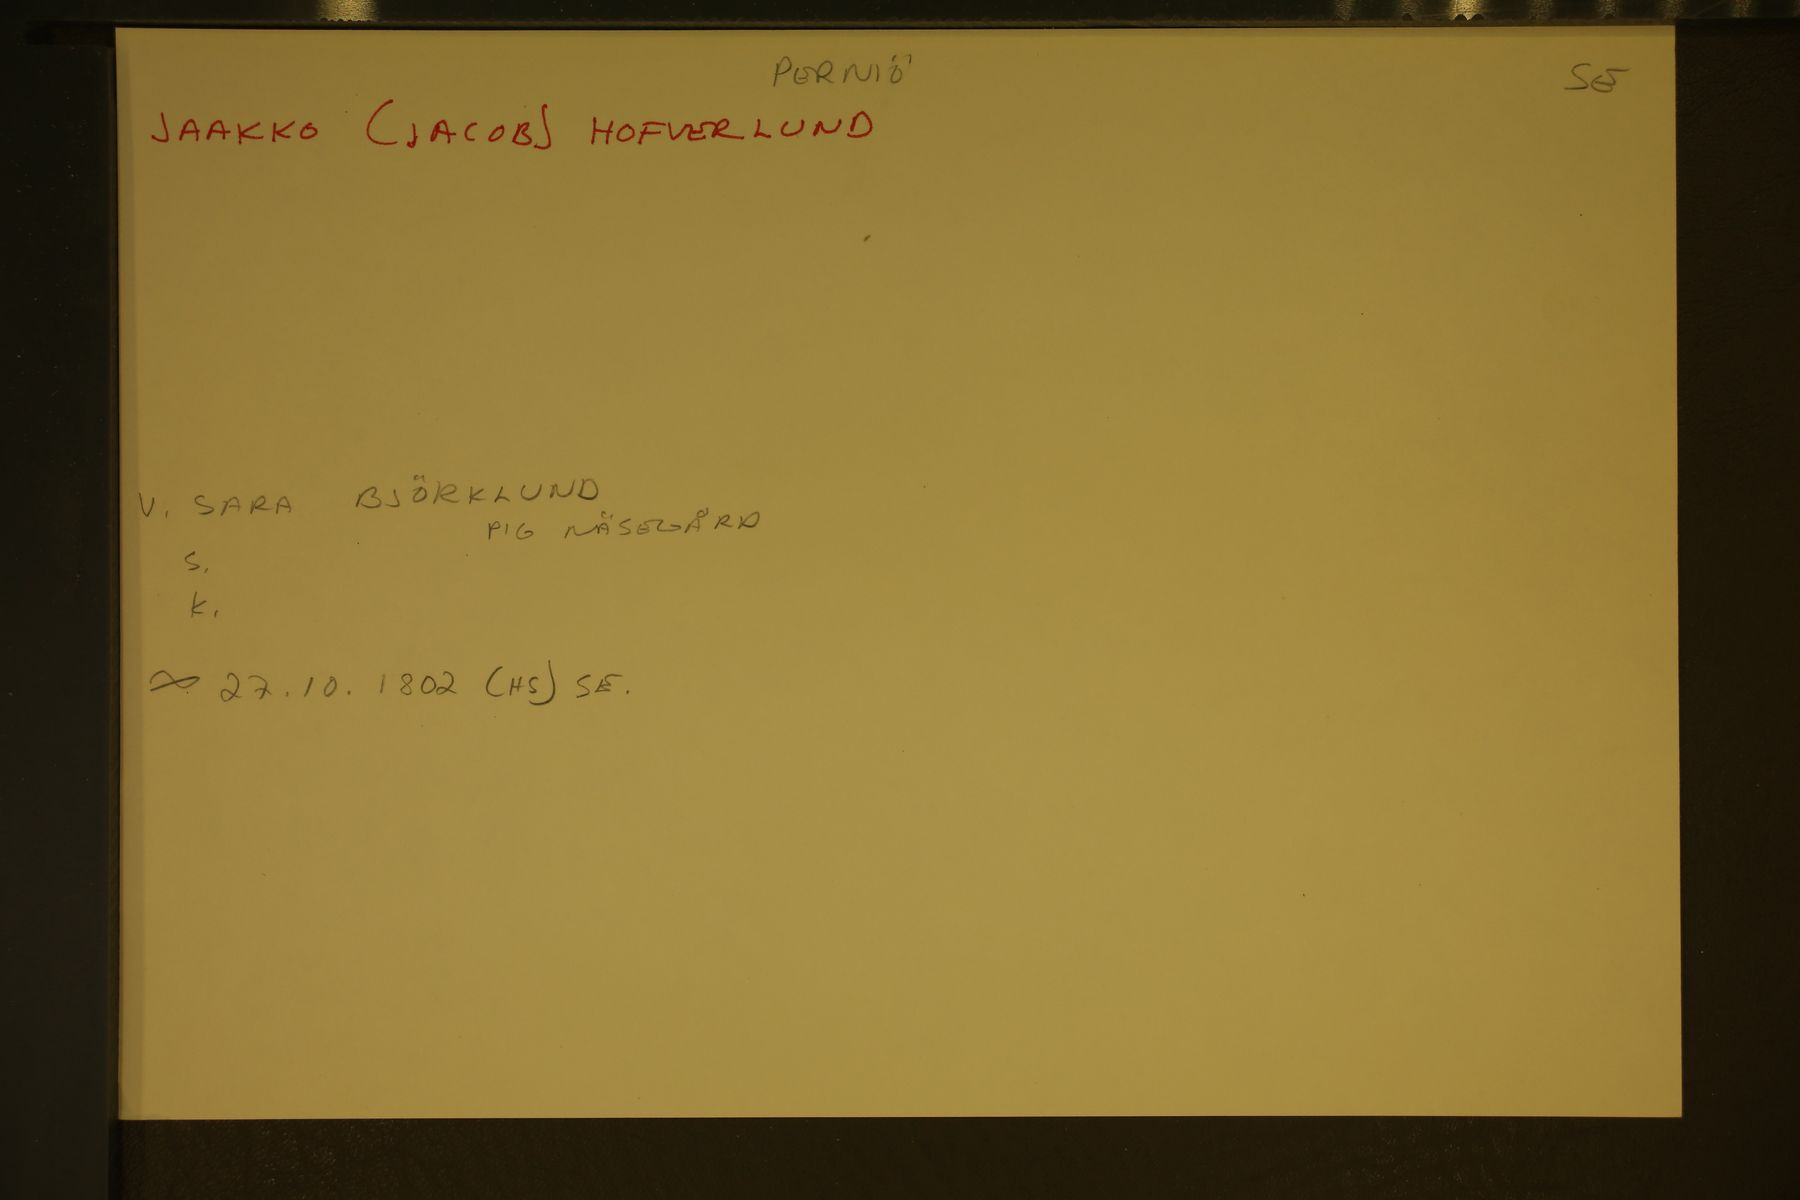 PERNIÖ
SE
JAAKKO (JACOB) HOFVERLUND
V. SARA BJÖRKLUND
PIG NÄSEGÅRD
S.
K.
∞ 27.10.1802 (HS) SE.